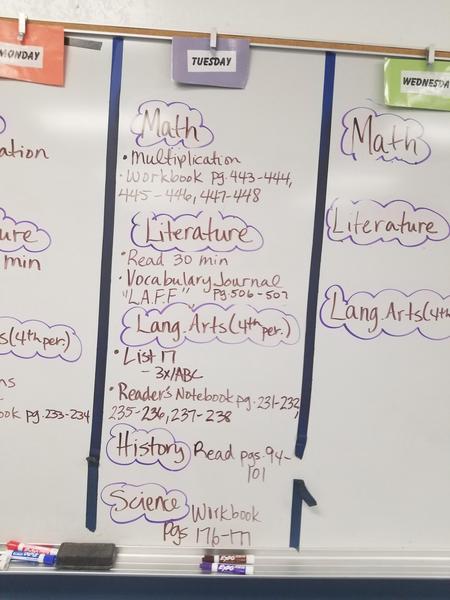 MONDAY
ation
ure
min
s(4th per.)
ns
ook pg. 233-234
TUESDAY
Math
• Multiplication
• Workbook pg. 443-444,
445-446, 447-448
Literature
• Read 30 min
• Vocabulary Journal
"L.A.F.F" pg. 506-507
Lang. Arts (4th per.)
• List 17
- 3x/ABC
• Reader's Notebook pg. 231-232,
235-236, 237-238
History Read pgs. 94-
101
Science Workbook
pgs 176-177
WEDNESDA
Math
Literature
Lang. Arts (4th
EXPO
EXPO